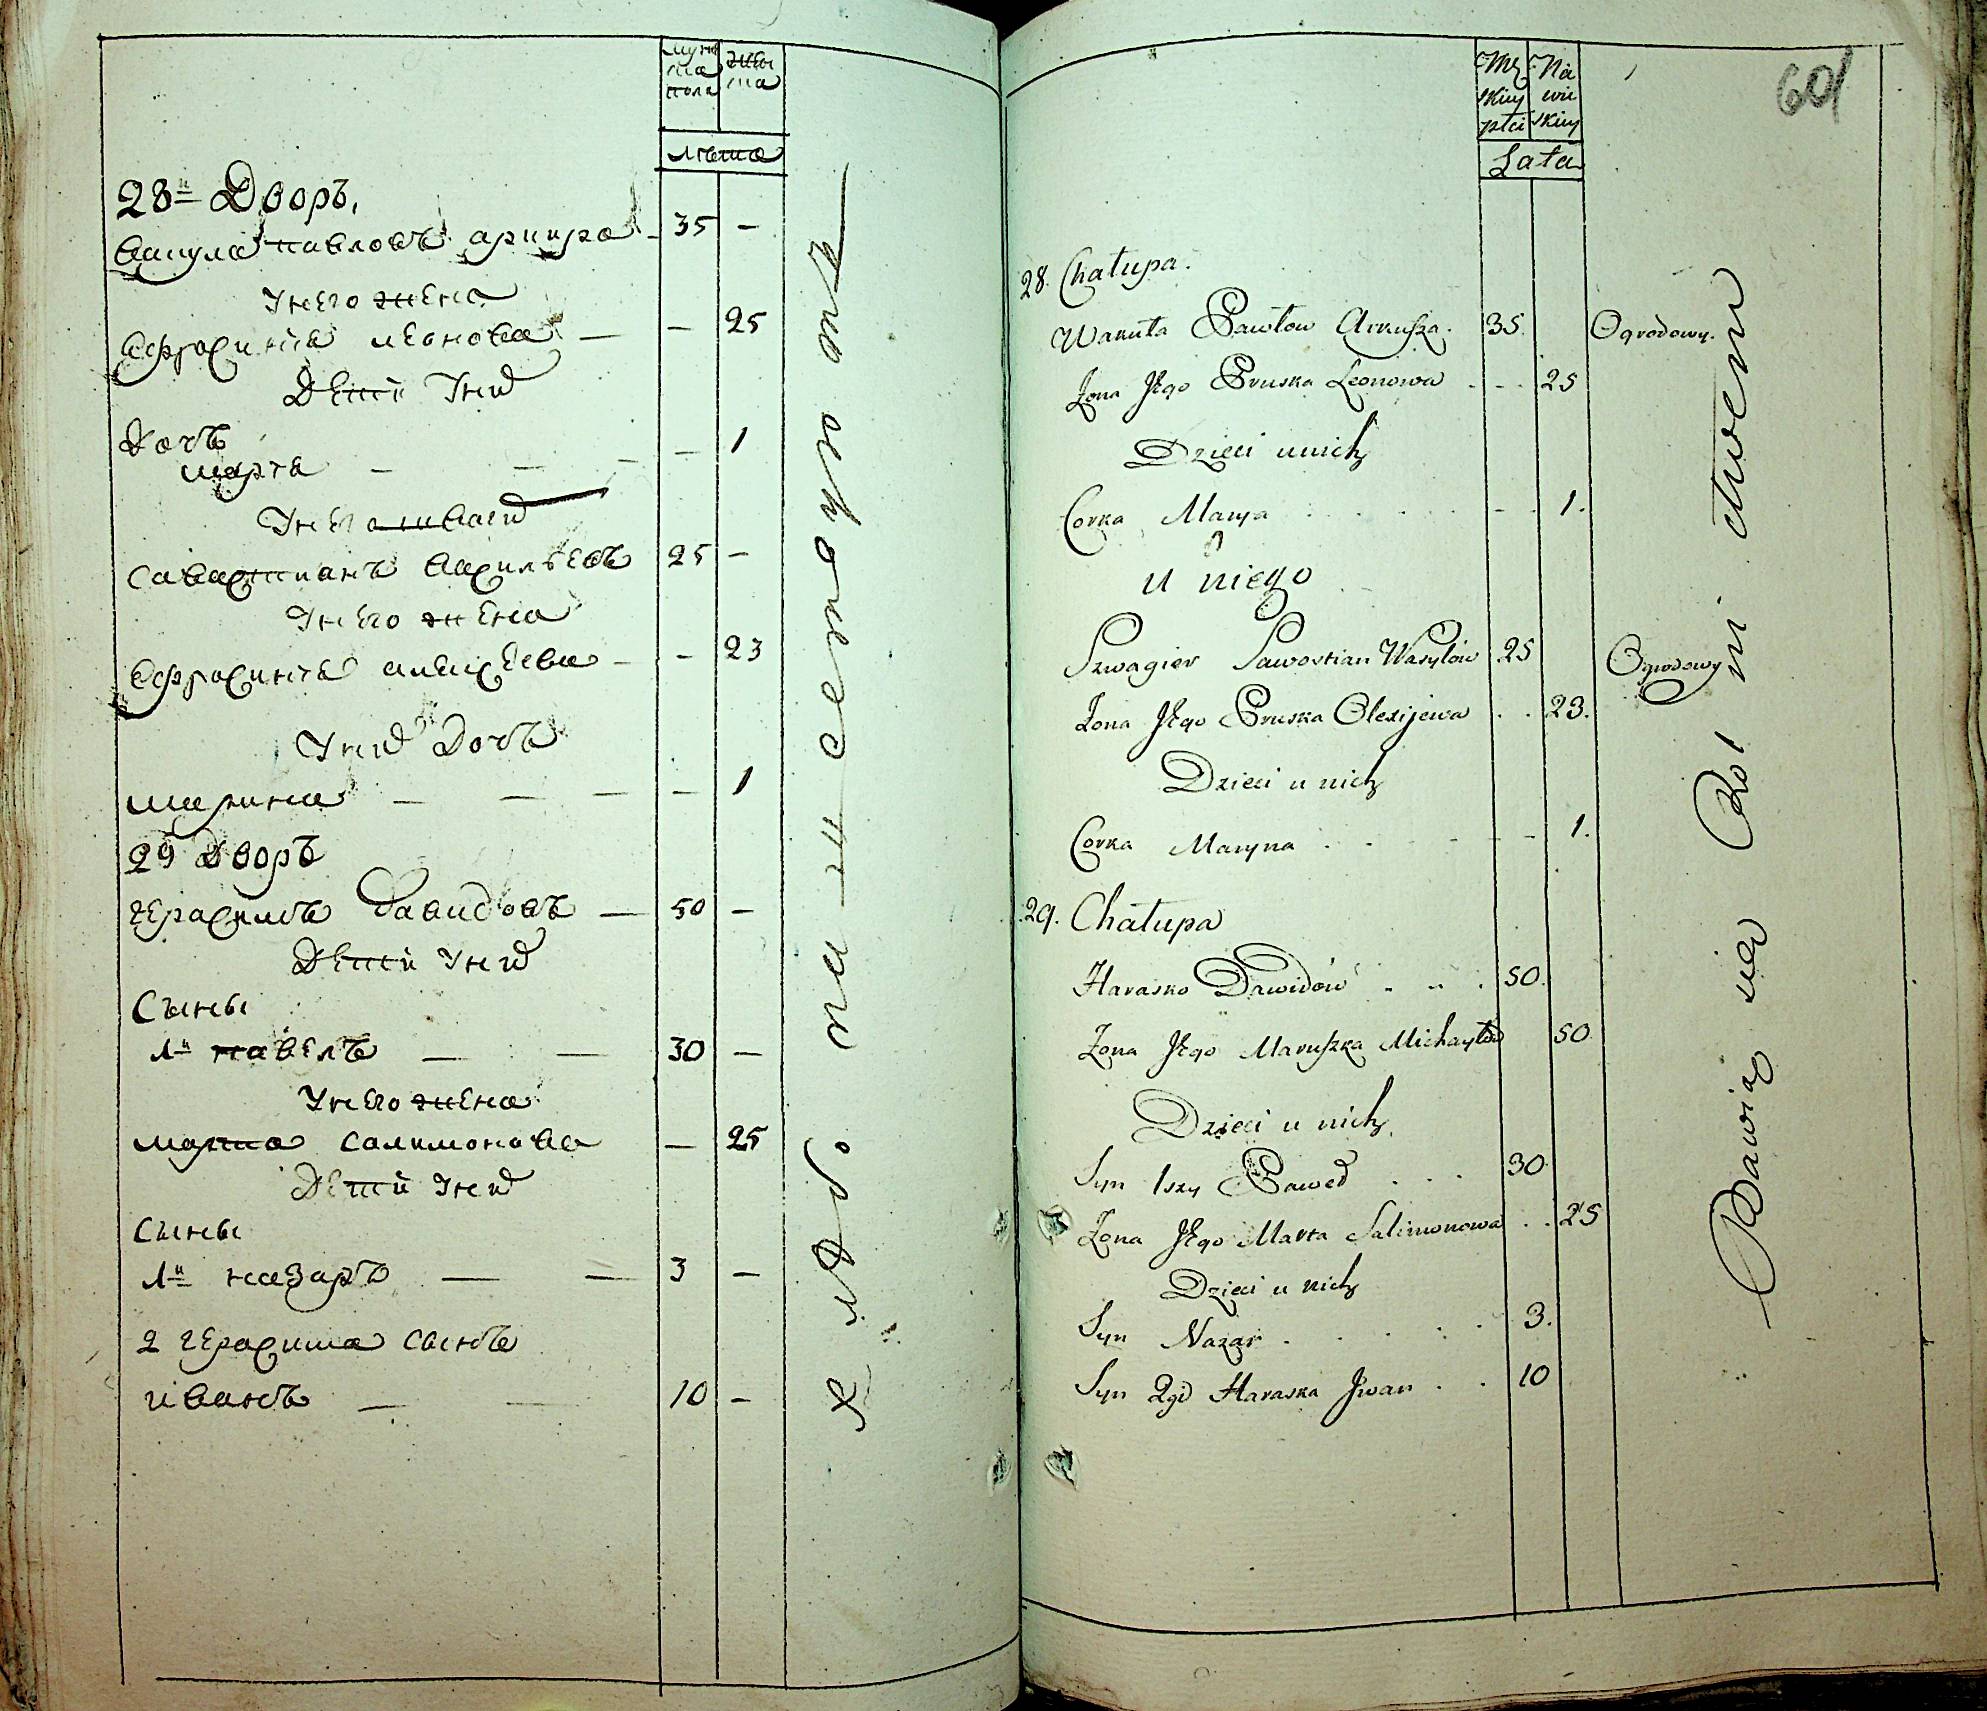 мужеска пола
женска
лѣта
28й Дворъ.
Вакула павловъ аркуша 35 —
у него жена
Ефросинiя леонова — — 25
Дети у них
Дочь
марья — — — — 1
у него шваген
Савастианъ Васильевъ 25 —
у него жена
Ефросинья алексеева — — 23
у них дочь
марина — — — — 1
29 Дворъ
герасимъ Давидовъ — 50 —
Дети у них
Сыны
1й павелъ — — 30 —
у него жена
марта салимонова — 25
Дети у них
Сыны
1й назаръ — — 3 —
2 герасима сынъ
иванъ — — 10 —
601
Męskiey płci
Niewieskiey
Lata
28. Chałupa.
Wakuła Pawłow Arkusza. 35. Ogrodowy.
Zona Jego Pruska Leonowa . - - 25
Dzieci u nich
Corka Marya . . . . . - . 1.
u niego
Szwagier Sawostian Wasylów 25 Ogrodowy
Zona Jego Pruska Olexijewa . . 23.
Dzieci u nich
Corka Maryna . . . - - 1.
29. Chałupa
Harasko Dawidów . . . 50.
Zona Jego Maruszka Michayłow 50
Dzieci u nich
Syn 1szy Paweł . . . 30
Zona Jego Marta Salimonowa . . 25
Dzieci u nich
Syn Nazar . . . . . 3.
Syn 2gi Haraska Jwan . . 10
Bawią się Rol ni ctwem